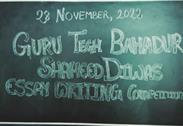 28 NOVEMBER, 2022
GURU TEGH BAHADUR
SHAHEED DIWAS
ESSAY WRITING COMPETITION